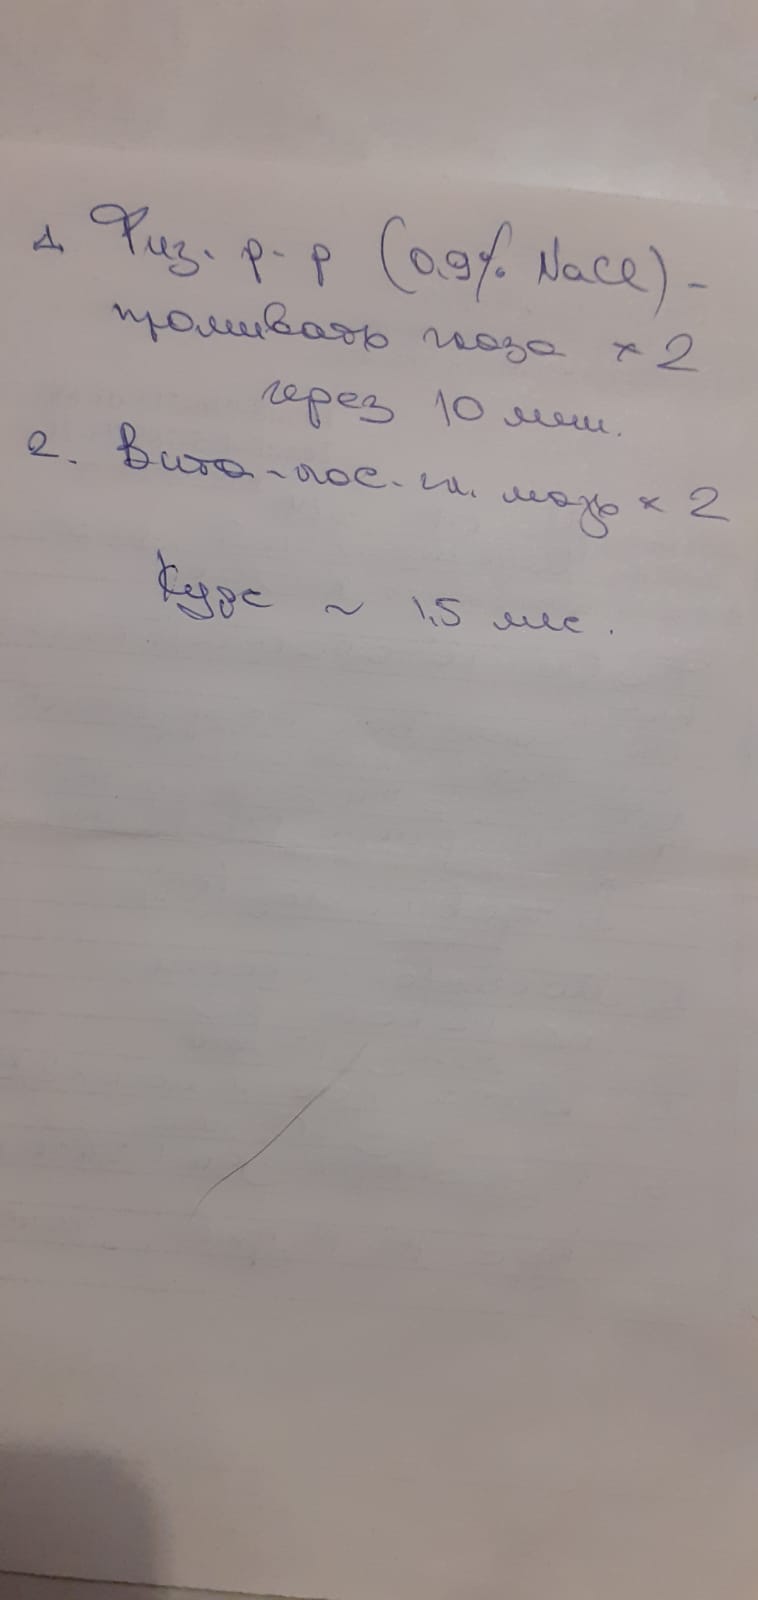 1. Физ. р-р (0.9% NaCl) -
промывать глаза × 2
через 10 мин.
2. Вита-пос - гл. мазь × 2
Курс ~ 1,5 мес.